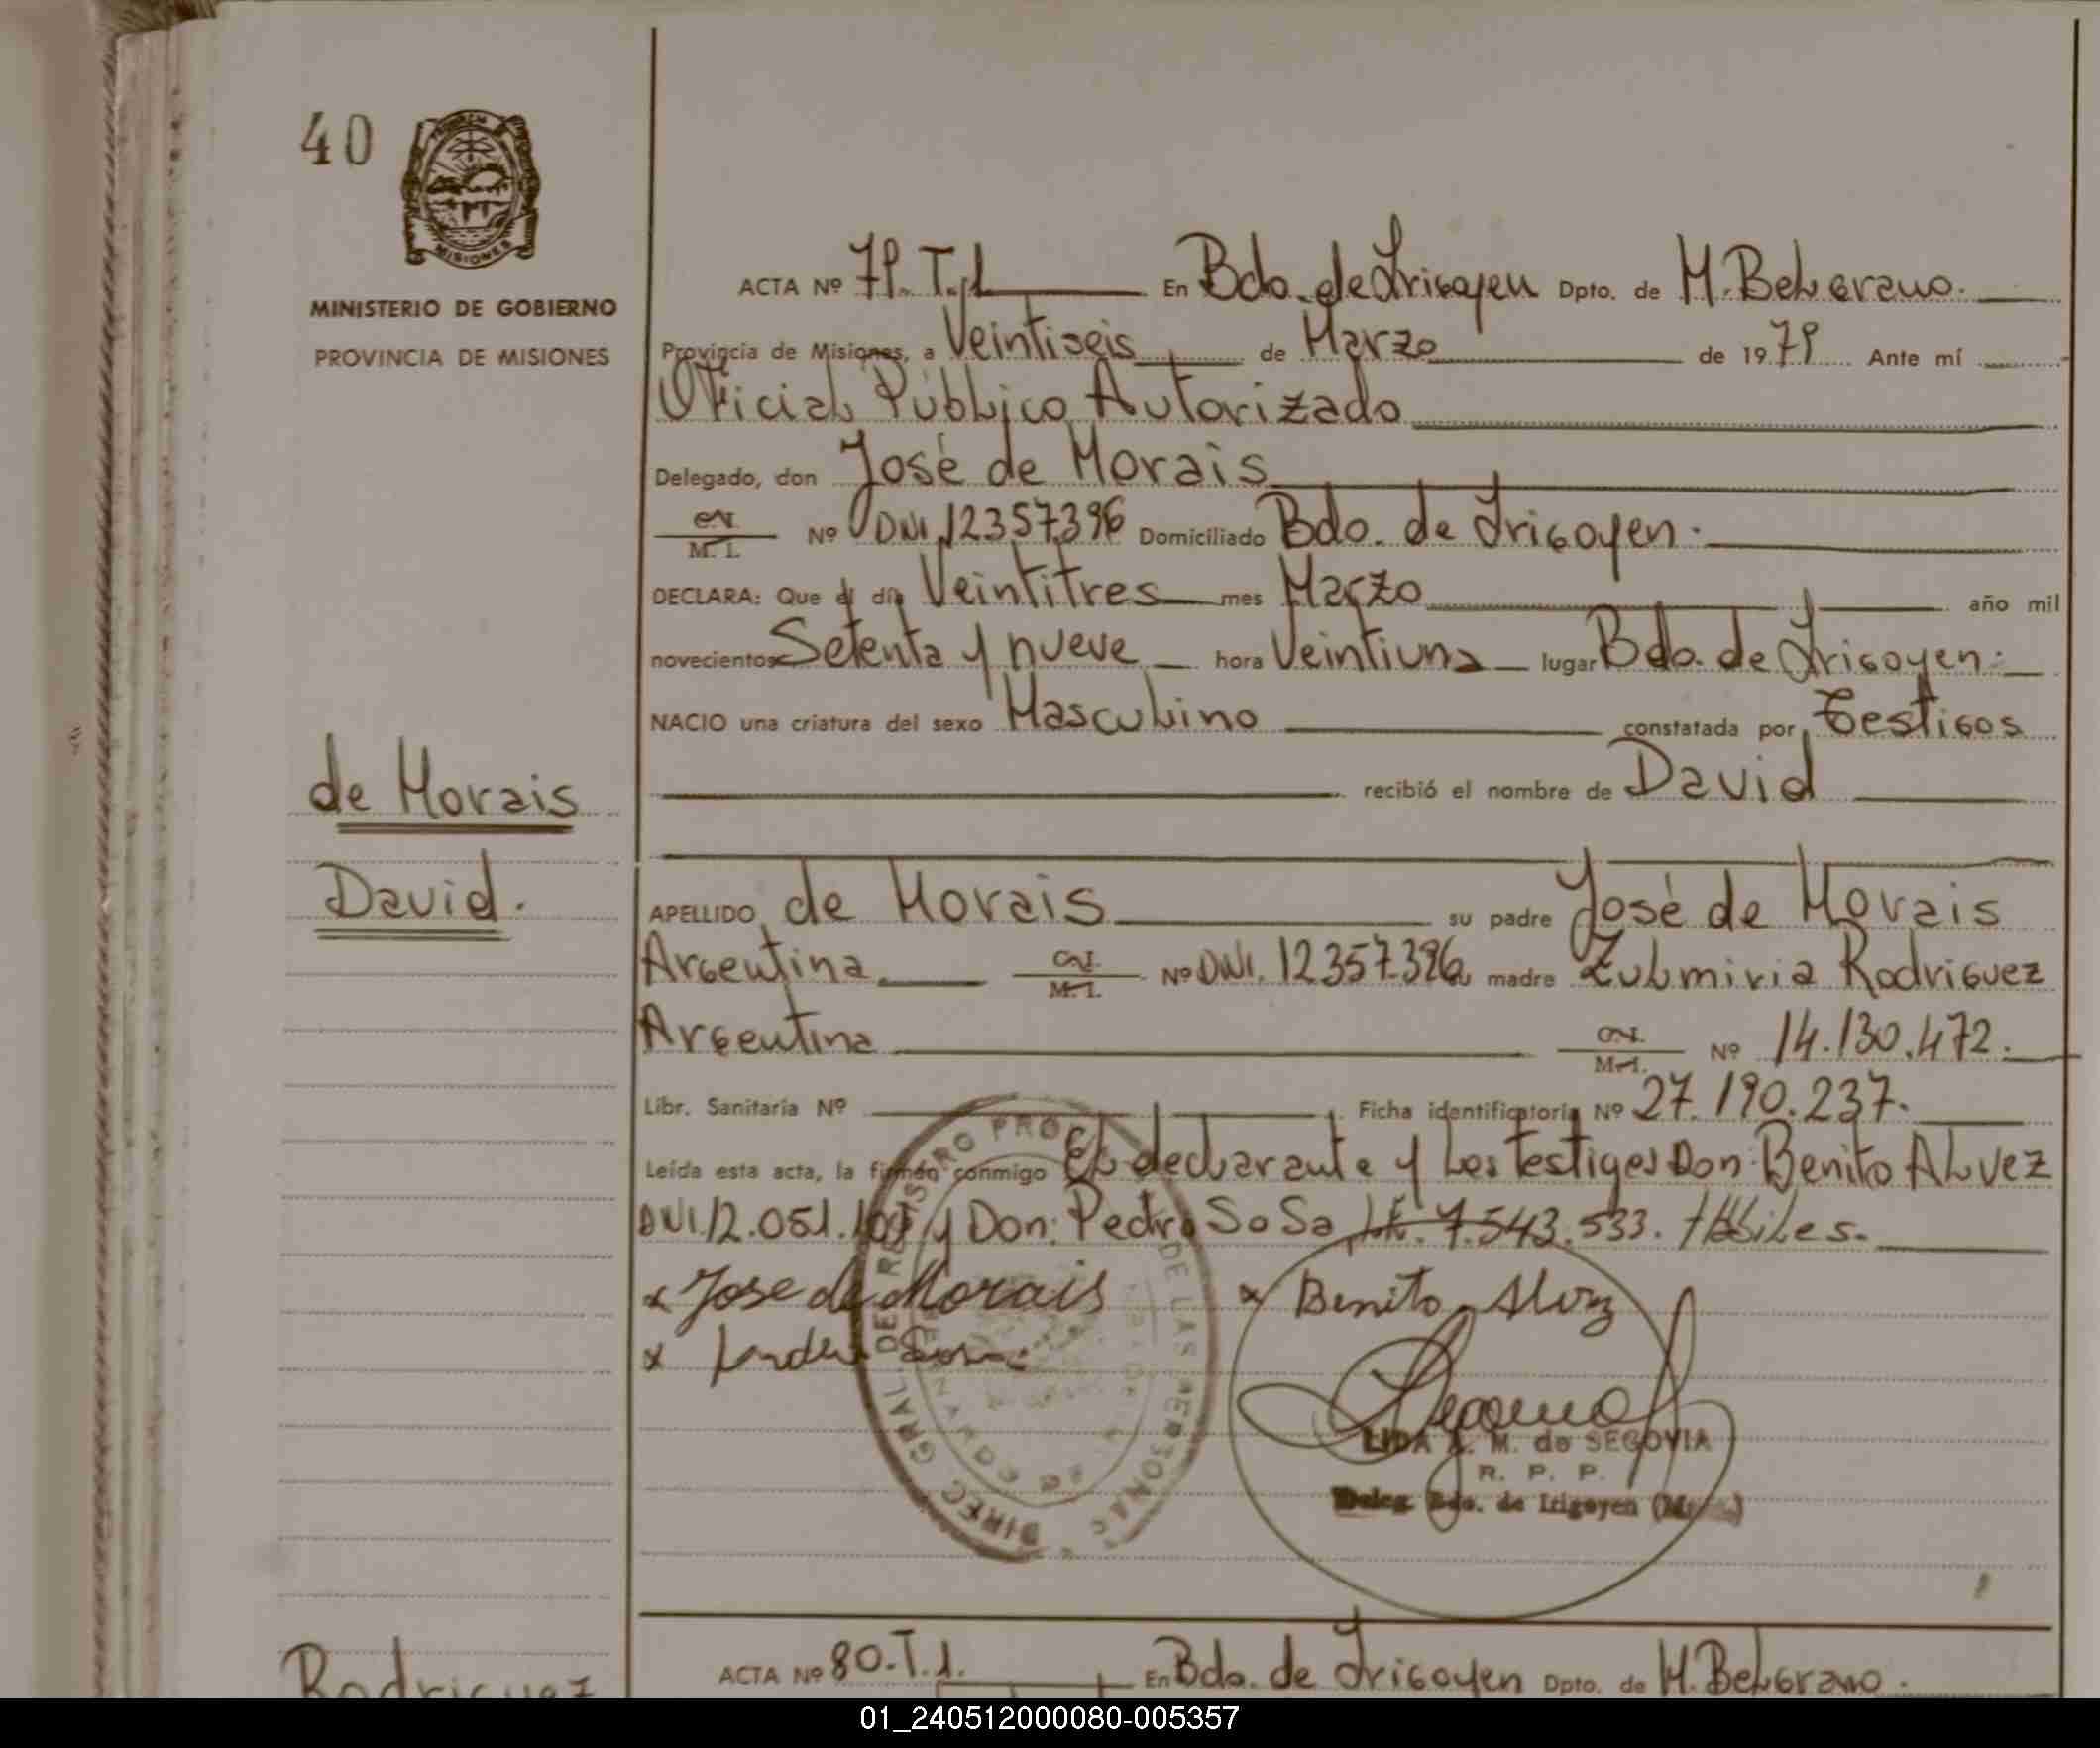 40
MISIONES
MINISTERIO DE GOBIERNO
PROVINCIA DE MISIONES
ACTA Nº 79. T.1 En Bdo. de Irigoyen Dpto. de M. Belgrano.
Provincia de Misiones, a Veintiseis de Marzo de 1979 Ante mí
Oficial Público Autorizado
Delegado, don José de Morais
M. I. Nº DNI 12357.396 Domiciliado Bdo. de Irigoyen.
DECLARA: Que el día Veintitres mes Marzo año mil
novecientos Setenta y nueve hora Veintiuna lugar Bdo. de Irigoyen.
NACIO una criatura del sexo Masculino constatada por Testigos
recibió el nombre de David
de Morais
David.
APELLIDO de Morais su padre José de Morais
Argentina M. I. Nº DNI. 12357.396 madre Zulmiria Rodriguez
Argentina M. I. Nº 14.130.472.
Libr. Sanitaria Nº Ficha identificatoria Nº 27.190.237.
Leída esta acta, la firman conmigo El declarante y Los Testigos Don: Benito Alvez
DNI.12.051. y Don: Pedro Sosa 7.543.533. Hábiles.
x Jose de Morais x Benito Alvez
x
DIREC. GRAL. DEL REGISTRO PROV. DE LAS PERSONAS
LIDA M. de SEGOVIA
R. P. P.
Deleg. Bdo. de Irigoyen
Rodriguez
ACTA Nº 80.T.1. En Bdo. de Irigoyen Dpto. de M. Belgrano.
01_240512000080-005357